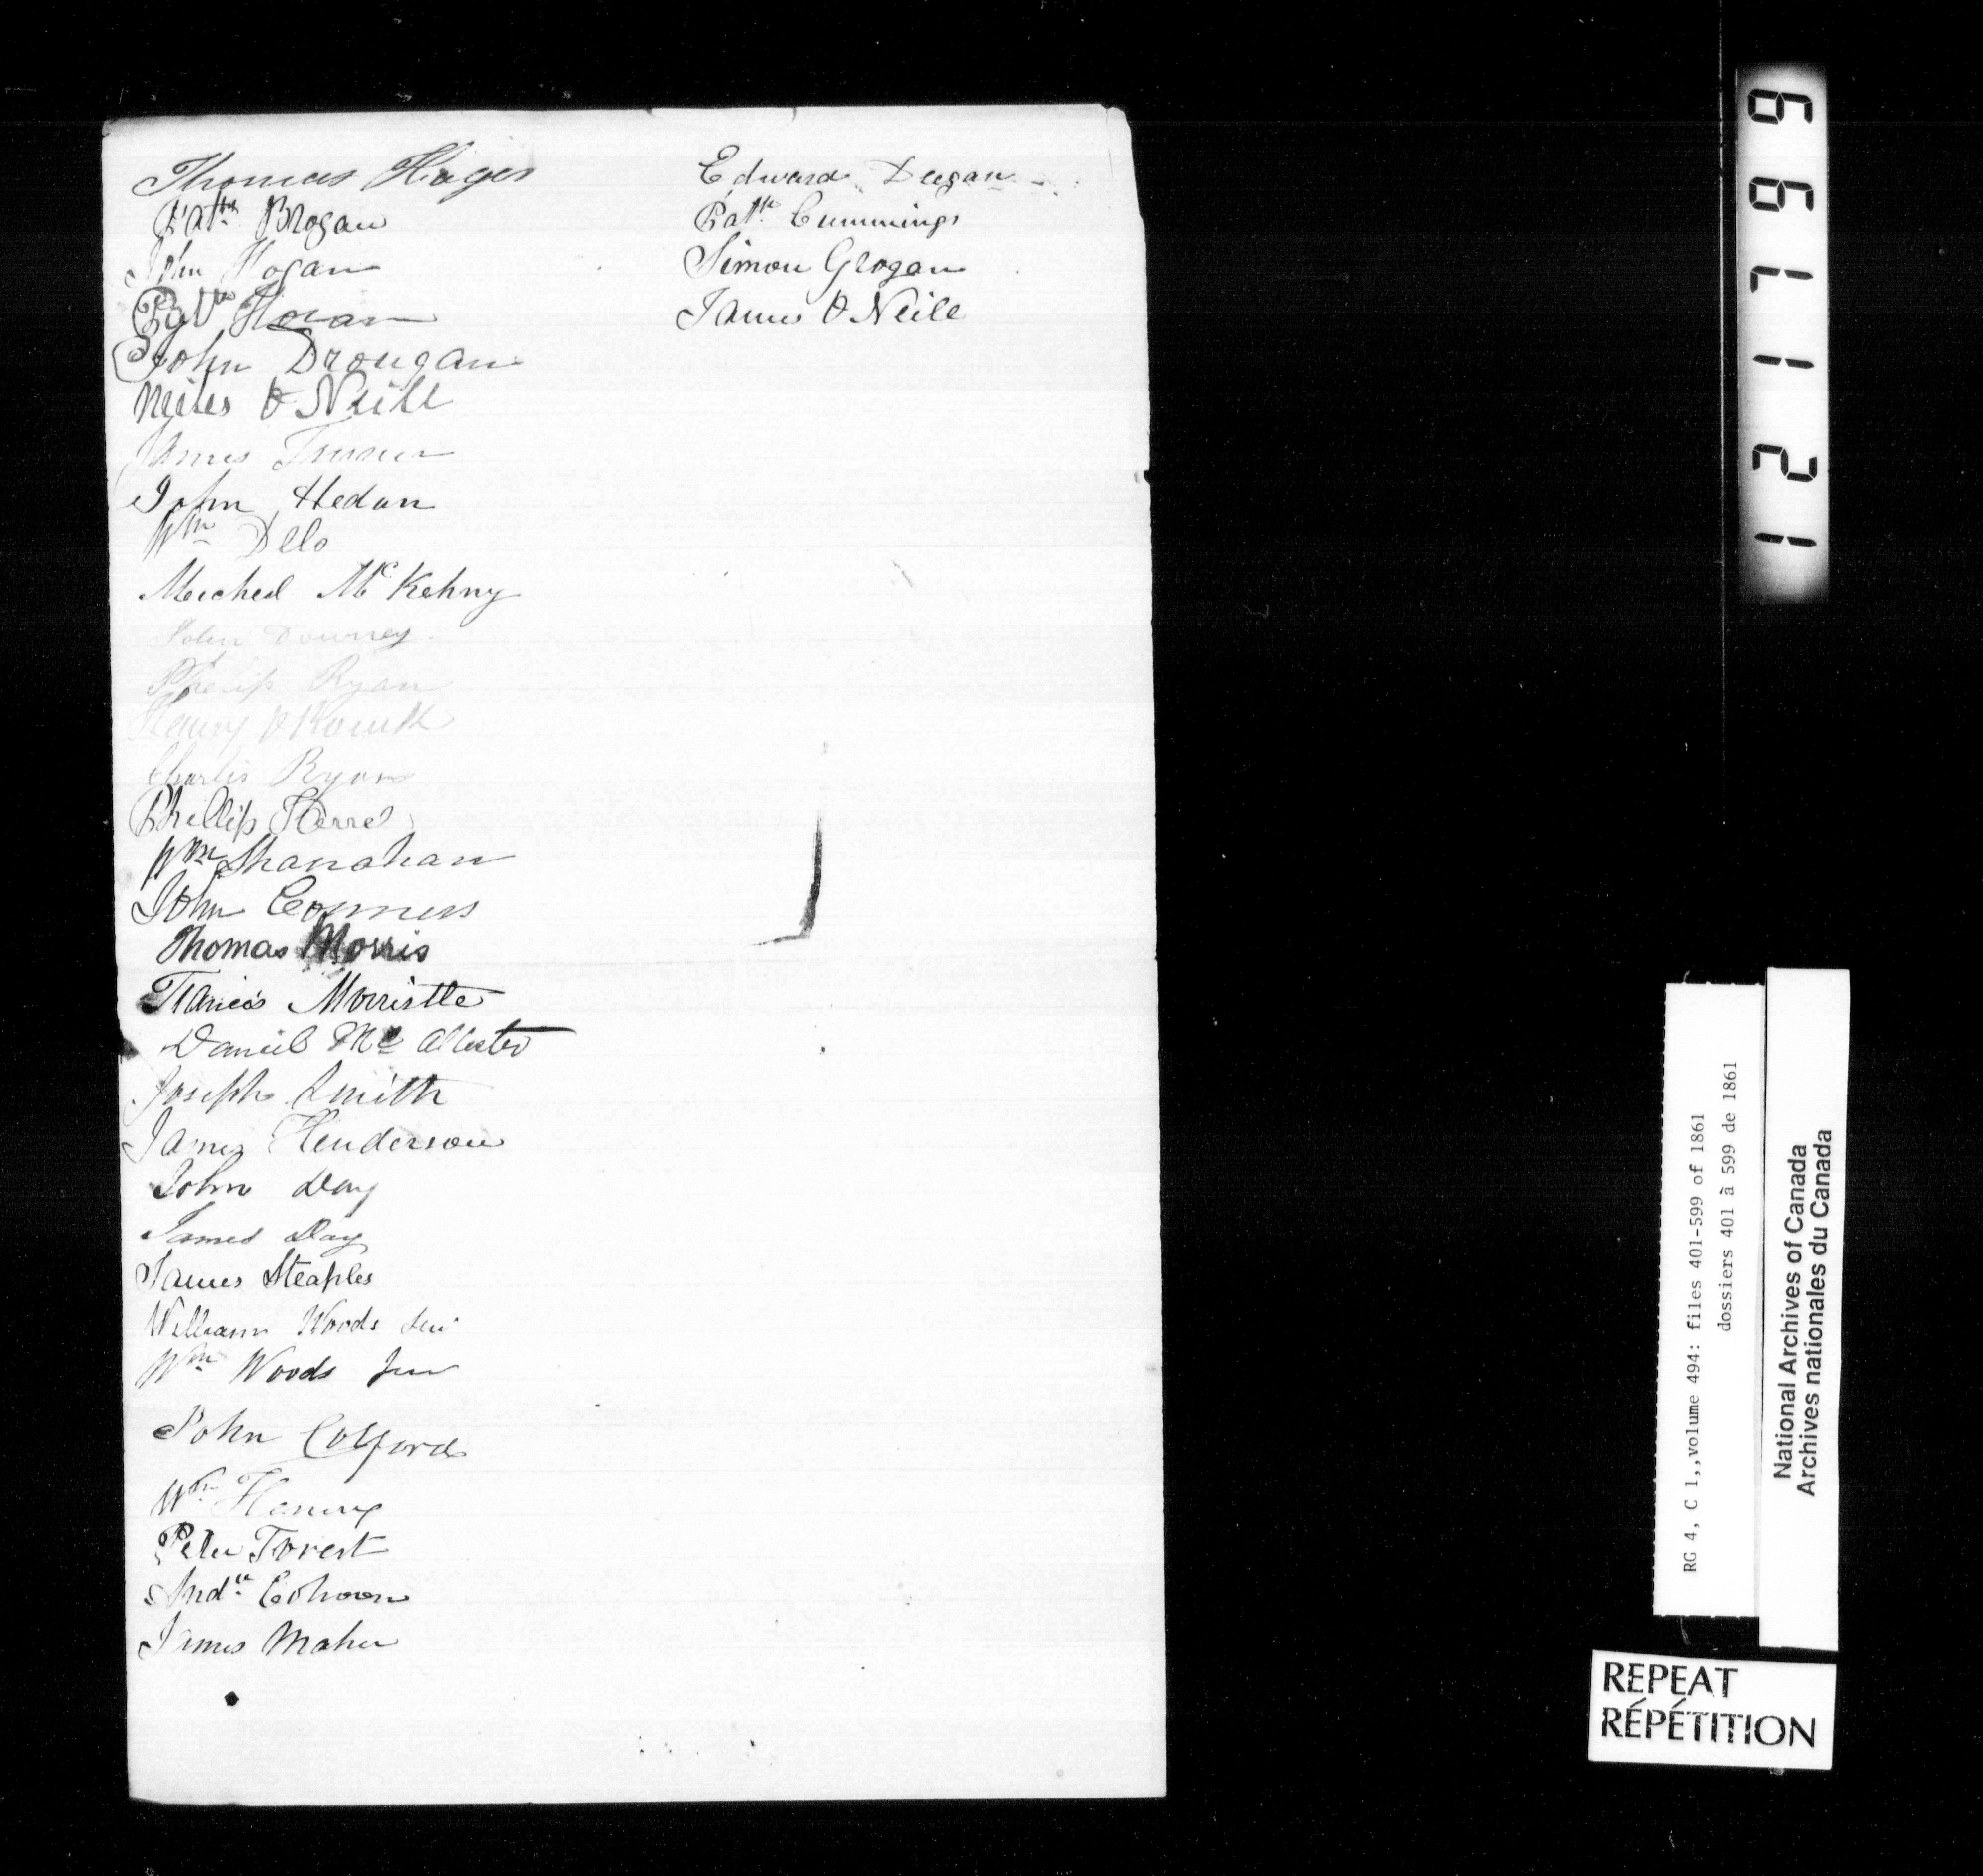 Thomas Hages
Patk Brogan
John Hogan
Patk Horan
John Drougan
Miles O Neill
James Turner
John Hedan
Wm Delo
Meichel Mc Kehny
John Downey
Phelip Ryan
Henry
Charles Ryan
Phillip Kerrel
Wm Shanahan
John Conners
Thomas Morris
Francis Morristte
Daniel Mc Allester
Joseph Smith
James Henderson
John Day
James Day
James Steaples
William Woods Sen
Wm Woods Jun
John Colford
Wm Fleming
Peter Forest
Andw Cohoon
James Maher
Edward Deegan
Patk Cummings
Simon Grogan
James O Neile
1 2 1 7 6 6
RG 4, C 1,,volume 494: files 401-599 of 1861
dossiers 401 à 599 de 1861
National Archives of Canada
Archives nationales du Canada
REPEAT
RÉPÉTITION